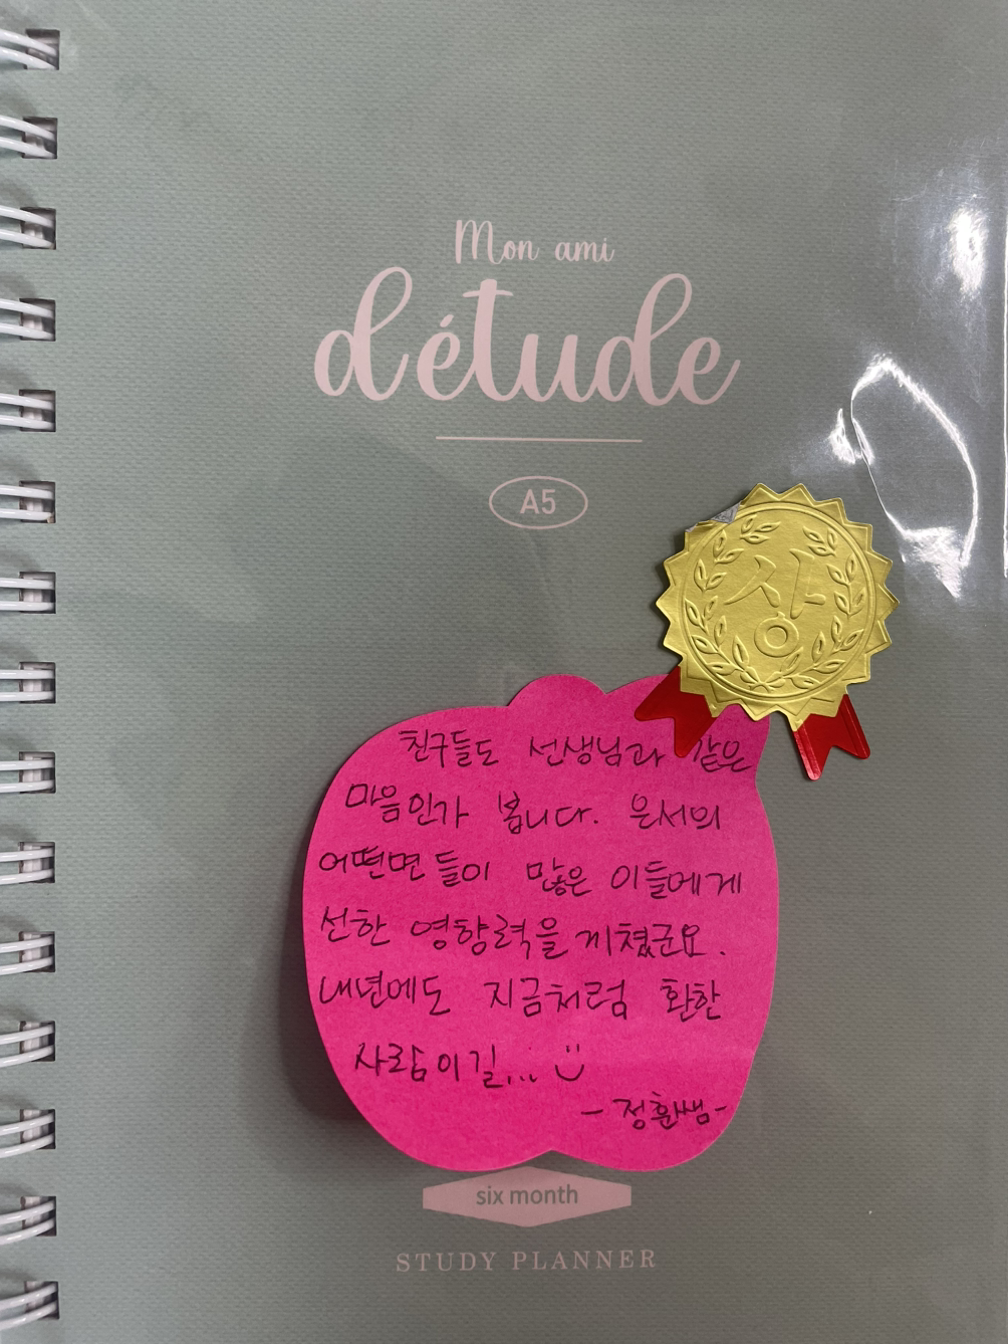 Mon ami
d'étude
A5
상
친구들도 선생님과 같은
마음인가 봅니다. 은서의
어떤면들이 많은 이들에게
선한 영향력을 끼쳤군요.
내년에도 지금처럼 환한
사람이길... :)
- 정훈쌤 -
six month
STUDY PLANNER